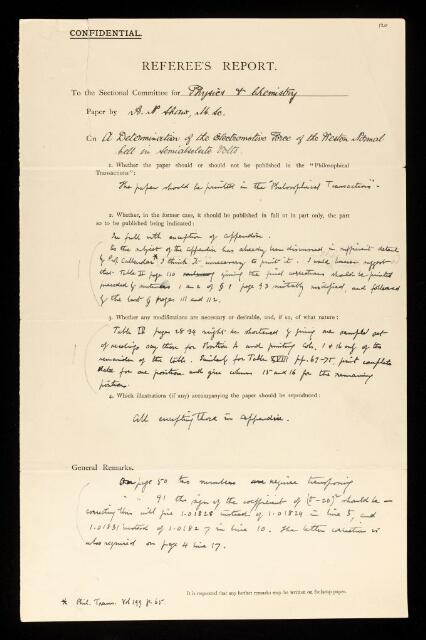 120
CONFIDENTIAL.
REFEREE'S REPORT.
To the Sectional Committee for Physics & Chemistry
Paper by A. N. Shaw, M.Sc.
On A Determination of the Electromotive Force of the Weston Normal
Cell in semiabsolute Volts.
1. Whether the paper should or should not be published in the "Philosophical
Transactions":
The paper should be printed in the "Philosophical Transactions".
2. Whether, in the former case, it should be published in full or in part only, the part
so to be published being indicated:
In full with exception of appendix.
As the subject of the appendix has already been discussed in sufficient detail
by Prof. Callendar* I think it unnecessary to print it. I would however suggest
that Table II page 110 giving the final corrections should be printed
preceded by 1 and 2 of § 1 page 93 suitably modified, and followed
by the last § pages 111 and 112.
3. Whether any modifications are necessary or desirable, and, if so, of what nature:
Table IV pages 28-34 might be shortened by giving one sample set
of readings say those for Position A and printing Cols. 1 & 16 only of the
remainder of the table. Similarly for Table XVIII pp. 69-75, print complete
data for one position and give columns 15 and 16 for the remaining
positions.
4. Which illustrations (if any) accompanying the paper should be reproduced:
All excepting those in appendix.
General Remarks.
On page 50 two numbers require transposing
" " 91 the sign of the coefficient of (t-20)² should be –
correcting this will give 1.01828 instead of 1.01824 in line 5, and
1.01831 instead of 1.01827 in line 10. The latter correction is
also required on page 4 line 17.
It is requested that any further remarks may be written on foolscap paper.
* Phil. Trans. Vol 199 p. 65.